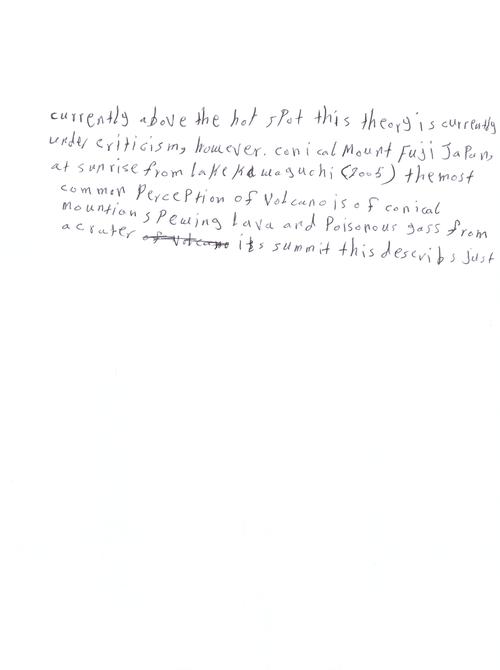 currently above the hot spot this theory is currently
under criticism, however. conical Mount Fuji Japan,
at sunrise from lake kawaguchi (2005) the most
common Perception of Volcano is of conical
mountion spewing Lava and Poisonous gass from
a crater of volcano its summit this describs just